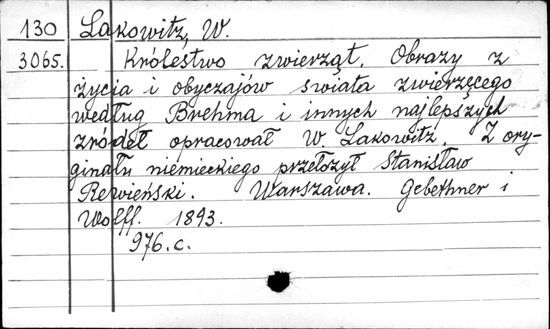 130 Lakowitz, W.
3065. Królestwo zwierząt. Obrazy z
życia i obyczajów świata zwierzęcego
według Brehma i innych najlepszych
źródeł opracował W. Lakowitz. Z ory-
ginału niemieckiego przełożył Stanisław
Rewieński. Warszawa. Gebethner i
Wolff. 1893.
976.c.